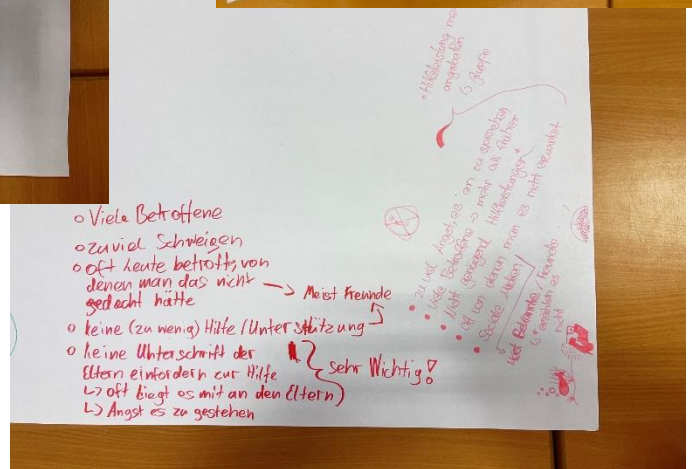 o Viele Betroffene
o zuviel Schweigen
o oft Leute betroffs, von
denen man das nicht
gedacht hätte
-> Meist Freunde
o keine (zu wenig) Hilfe / Unterstützung
o keine Unterschrift der
Eltern einfordern zur Hilfe
↳ oft liegt es mit an den Eltern
↳ Angst es zu gestehen
sehr Wichtig!
• Hilfeleistung
angeboten
• zu viel Angst, es an zu sprechen
• Viele Betroffene -> mehr als früher
• Nicht genügend Hilfeleistungen
• Oft von denen man es nicht erwartet
• Soziale Medien
Meist Bekannte / Freunde
↳ erzählen es
nicht